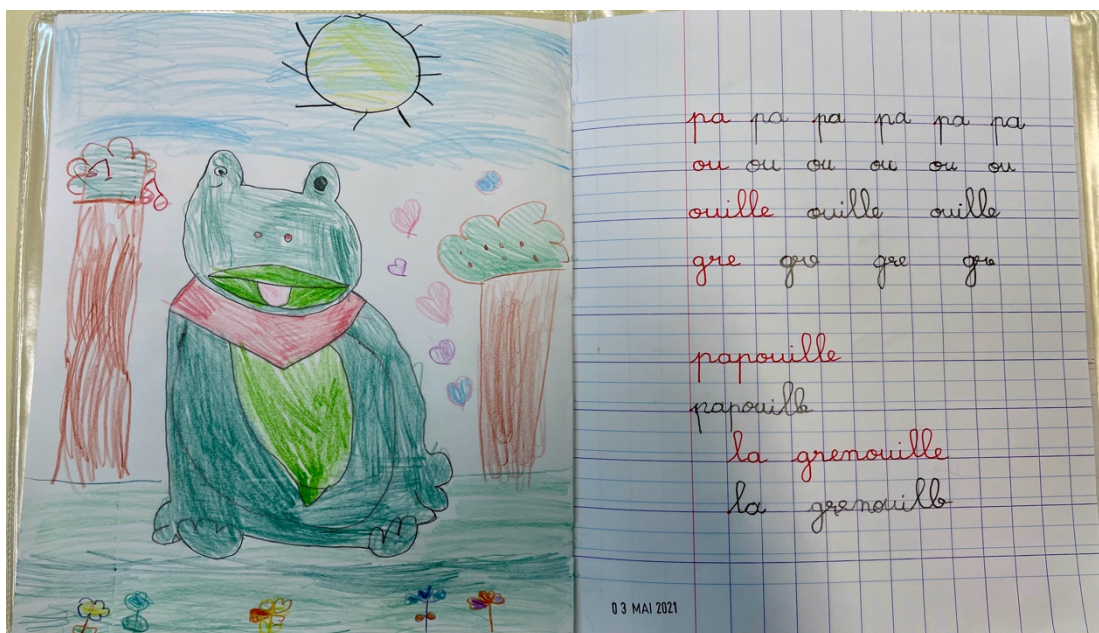 pa pa pa pa pa pa
ou ou ou ou ou ou
ouille ouille ouille
gre gre gre gre
papouille
papouille
la grenouille
la grenouille
03 MAI 2021